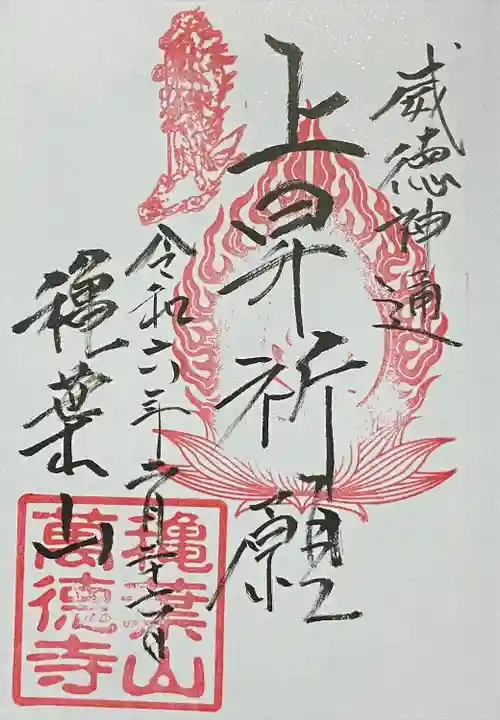 威徳神通
上昇祈願
令和六年二月二十六日
穐葉山
穐葉山
萬德寺